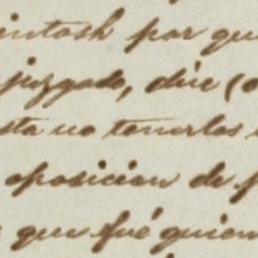 intosh por qu
juzgado, dice (
sta no tenerlas
oposicion de p
que fué quien